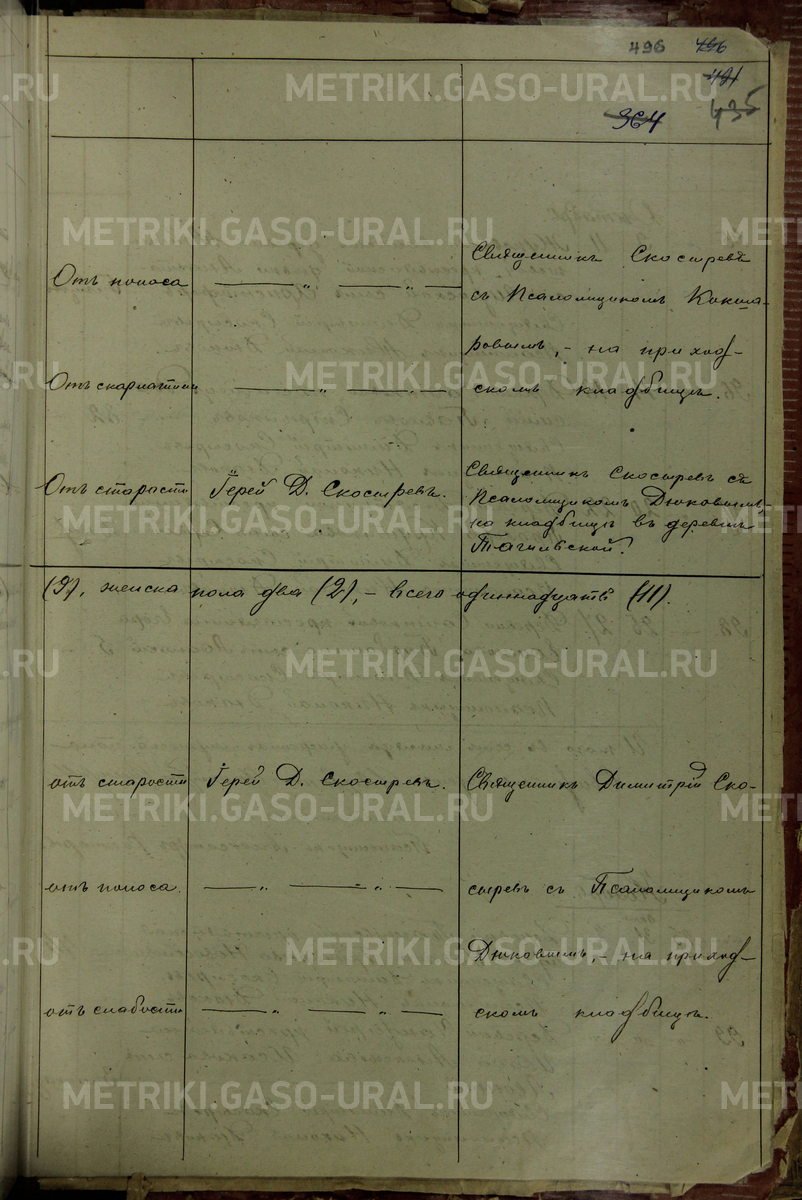 496 486
491
364 435
Священникъ Скосыревъ
Отъ поноса — „ — „ — съ Псаломщикомъ Кокша-
ровымъ, - на приход-
Отъ скарлатины — „ — „ — скомъ кладбищѣ.
Священникъ Скосыревъ съ
Отъ старости Іерей Д. Скосыревъ. Псаломщикомъ Дюковымъ,
на кладбищѣ въ деревнѣ
Тагильской.
(9), женска пола два (2), - всего одиннадцать (11).
отъ старости Іерей Д. Скосыревъ. Священникъ Димитрій Ско-
отъ поноса. — „ — „ — сыревъ съ Псаломщикомъ
Дюковымъ, - на приход-
отъ слабости — „ — „ — скомъ кладбищѣ.
METRIKI.GASO-URAL.RU